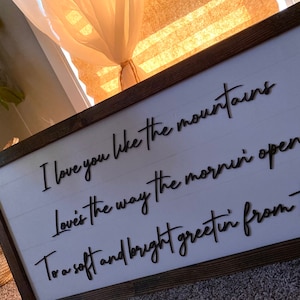 I love you like the mountains
Love's the way the mornin' open
To a soft and bright greetin' from